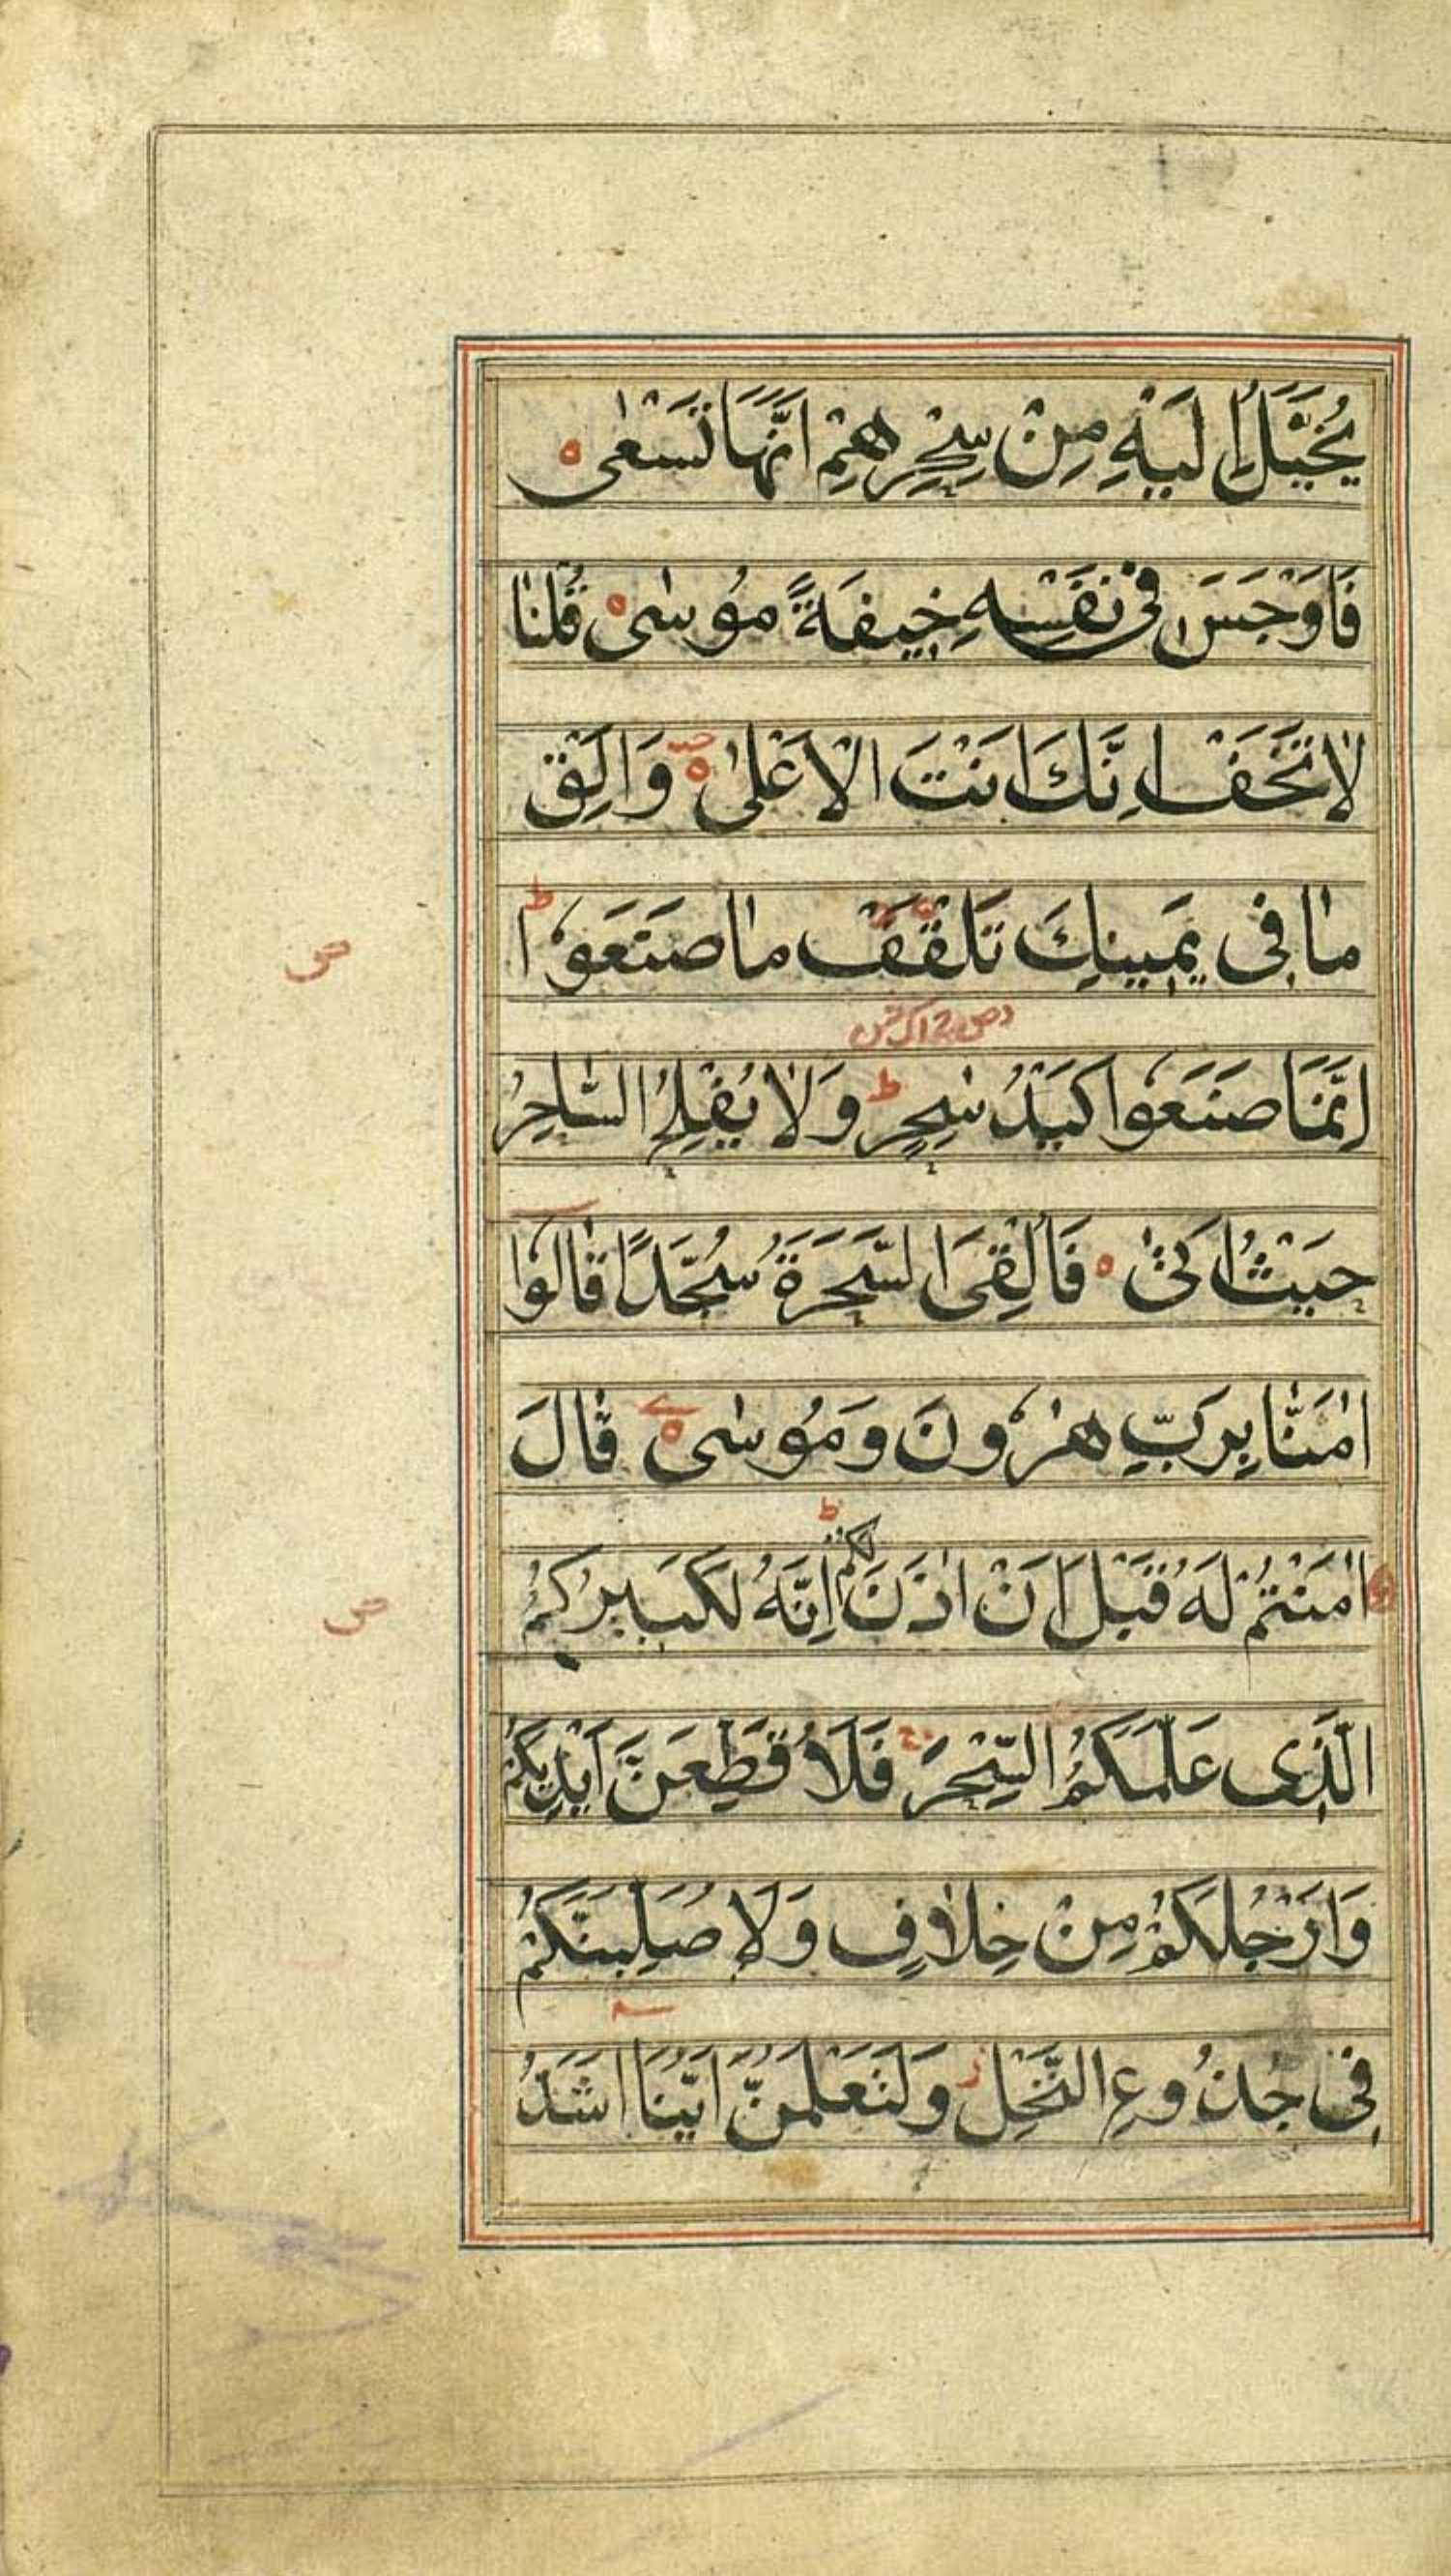 يُخَيَّلُ إِلَيْهِ مِنْ سِحْرِهِمْ اَنَّهَا تَسْعٰى ه
فَاَوْجَسَ فِىْ نَفْسِهٖ خِيفَةً مُوْسٰى ه قُلْنٰا
لٰا تَخَفْ اِنَّكَ اَنْتَ الْاَعْلٰى ه وَاَلْقِ
مٰا فِى يَمِينِكَ تَلْقَفْ مٰا صَنَعَوْا ط
ص
اِنَّمَا صَنَعَوْا كَيْدُ سٰحِرٍ ط وَلٰا يُفْلِحُ السّٰاحِرُ
حَيْثُ اَتٰى ه فَاُلْقِىَ السَّحَرَةُ سُجَّدًا قٰالُوْا
اٰمَنّٰا بِرَبِّ هٰرُوْنَ وَمُوْسٰى ه قٰالَ
اٰمَنْتُمْ لَهُ قَبْلَ اَنْ اٰذَنَ لَكُمْ ط اِنَّهُ لَكَبِيْرُكُمُ
ص
الَّذِى عَلَّمَكُمُ السِّحْرَ فَلَاُقَطِّعَنَّ اَيْدِيَكُمْ
وَاَرْجُلَكُمْ مِنْ خِلٰافٍ وَلَاُصَلِّبَنَّكُمْ
فِى جُذُوْعِ النَّخْلِ ز وَلَتَعْلَمُنَّ اَيُّنَا اَشَدُّ